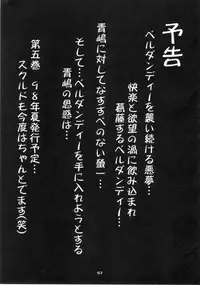 予告
ベルダンディーを襲い続ける悪夢…
快楽と欲望の渦に飲み込まれ
葛藤するベルダンディー…
青嶋に対してなすすべのない螢一…
そして…ベルダンディーを手に入れようとする
青嶋の思惑は…
第五巻 98年夏発行予定…
スクルドも今度はちゃんとでます(笑)
67